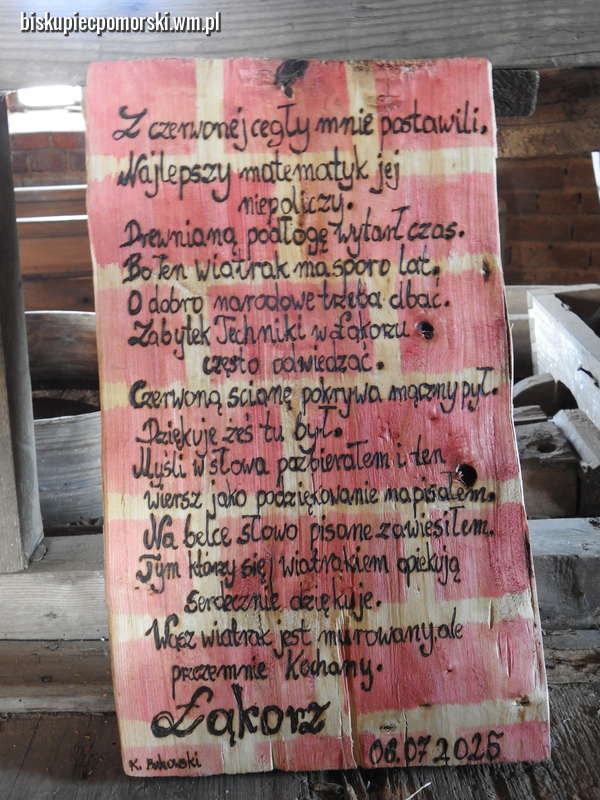 biskupiecpomorski.wm.pl
Z czerwonej cegły mnie postawili.
Najlepszy matematyk jej
niepoliczy.
Drewnianą podłogę wytarł czas.
Bo ten wiatrak ma sporo lat.
O dobro narodowe trzeba dbać.
Zabytek Techniki w Łąkorzu
często odwiedzać.
Czerwoną ścianę pokrywa mączny pył.
Dziękuję żeś tu był.
Myśli w słowa pozbierałem i ten
wiersz jako podziękowanie napisałem.
Na belce słowo pisane zawiesiłem.
Tym którzy się wiatrakiem opiekują
serdecznie dziękuje.
Wasz wiatrak jest murowany ale
przezemnie Kochany.
Łąkorz
06.07.2025
K.